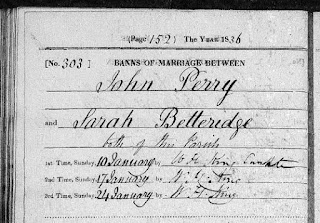 (Page 152) The Year 1836
[No. 303] BANNS OF MARRIAGE BETWEEN
John Perry
and Sarah Betteridge
both of this Parish
1st Time, Sunday, 10 January by W. F. King Curate
2nd Time, Sunday, 17 January by W. F. King
3rd Time, Sunday, 24 January by W. F. King